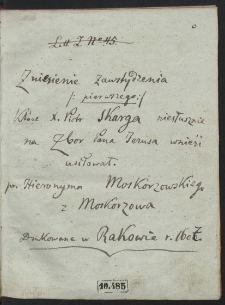 Litt. J. N° 45.
Zniesienie zawstydzenia
/: pierwszego :/
Które X. Piotr Skarga niesłusznie
na Zbor Pana Jezusa wnieść
usiłował.
przez Hieronyma Moskorzowskiego
z Moskorzowa
Drukowane w Rakowie r. 1607.
10.485